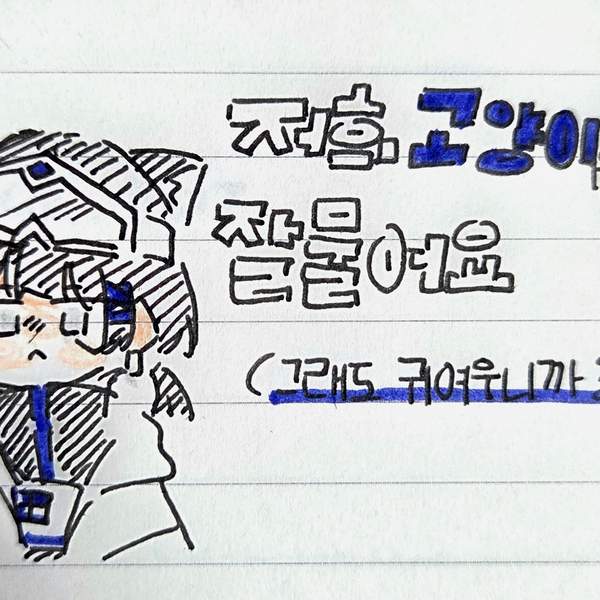 고양이
잘물어요
(그래도 귀여우니까